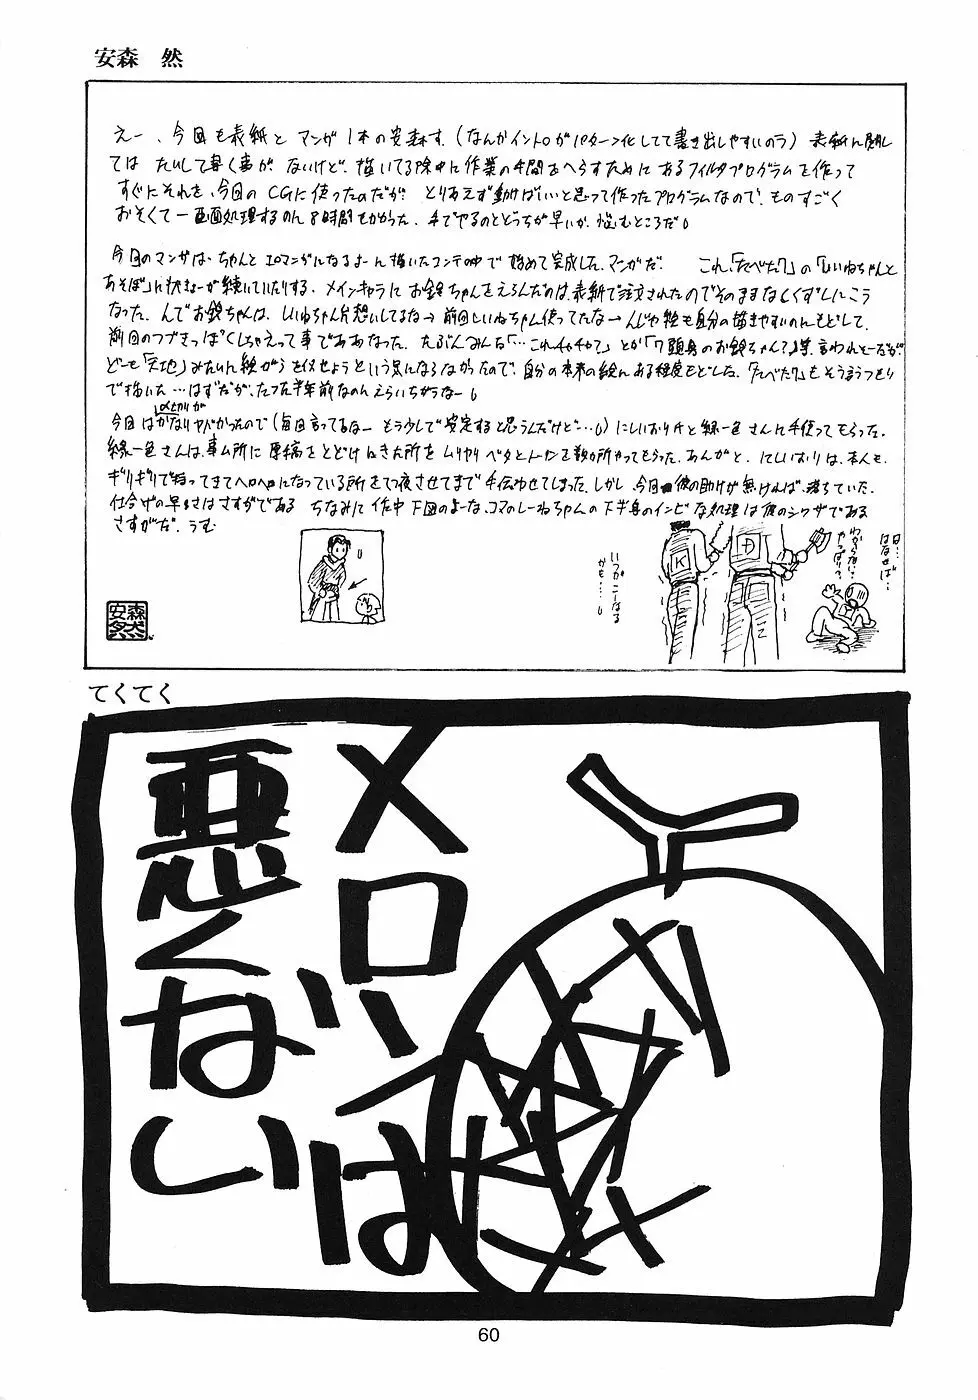 安森 然
えー、今回も表紙とマンガ1本の安森す(なんかイントロがパターン化してて書き出しやすいのう)表紙に関し
ては たいして書く事が、ないけど、描いてる際中に作業の手間をへらすために あるフィルタプログラムを作って
すぐにそれを、今回の CGに使ったのだが? とりあえず動けばいいと思って作ったプログラムなので、ものすごく
おそくて一画面処理するのに8時間もかかった、手でやるのとどっちが早いか、悩むところだ
今回のマンガは、ちゃんと エロマンガになるよーに描いたコンテの中で 始めて完成した、マンガだ! これ、「たべた?」の「しいねちゃんと
あそぼ」に状きょーが続いていたりする、メインキャラに お鈴ちゃんをえらんだのは、表紙で注文されたのでそのままなしくずしにこう
なった、んでお鈴ちゃんは、しいねちゃん片想いしてるな→前回しいねちゃん使ってたな→んじゃ絵も自分の描きやすいのにもどして、
前回のつづきっぽくしちゃえって事でああなった、たぶんみんな「…これチャチャ?」とか「7頭身のお鈴ちゃん?」等、言われそーだが?
どーも「天地」みたいに絵がらを似せようという気にならなかったので、自分の本来の絵にある程度もどした、「たべた?」もそうするつもり
で描いた…はずだが、たった半年前なのにえらいちがうなー
〆切りが
今回はかなりヤバかったので(毎回言ってるなー もう少しで安定すると思うんだけど…)にしいおりKと緑一色さんに手伝ってもらった、
緑一色さんは、事ム所に原稿をとどけにきた所をムリやりベタとトーンを数か所やってもらった、あんがと、にしいおりは、本人も、
ギリギリで持ってきてヘロヘロになっている所をてつ夜させてまで手伝わせてしまった、しかし、今回、彼の助けが無ければ、落ちていた、
仕合げの早さはさすがである ちなみに作中下図のよーな、コマのしーねちゃんの下半身のインビな処理は彼のシワザである
さすがだ、うむ
いつかこーなる
かも…
K
D
Z
ロ…
はなせば…
わからない…
やっぱり?
安森然
てくてく
メロンは
悪くない
60